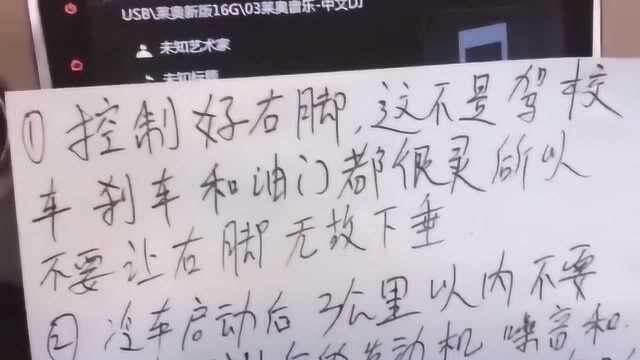 USB\莱奥新版16G\03莱奥音乐-中文DJ
未知艺术家
未知标题
① 控制好右脚,这不是驾校
车 刹车和油门都很灵所以
不要让右脚无故下垂
② 冷车启动后 3公里以内不要
发动机 噪音和